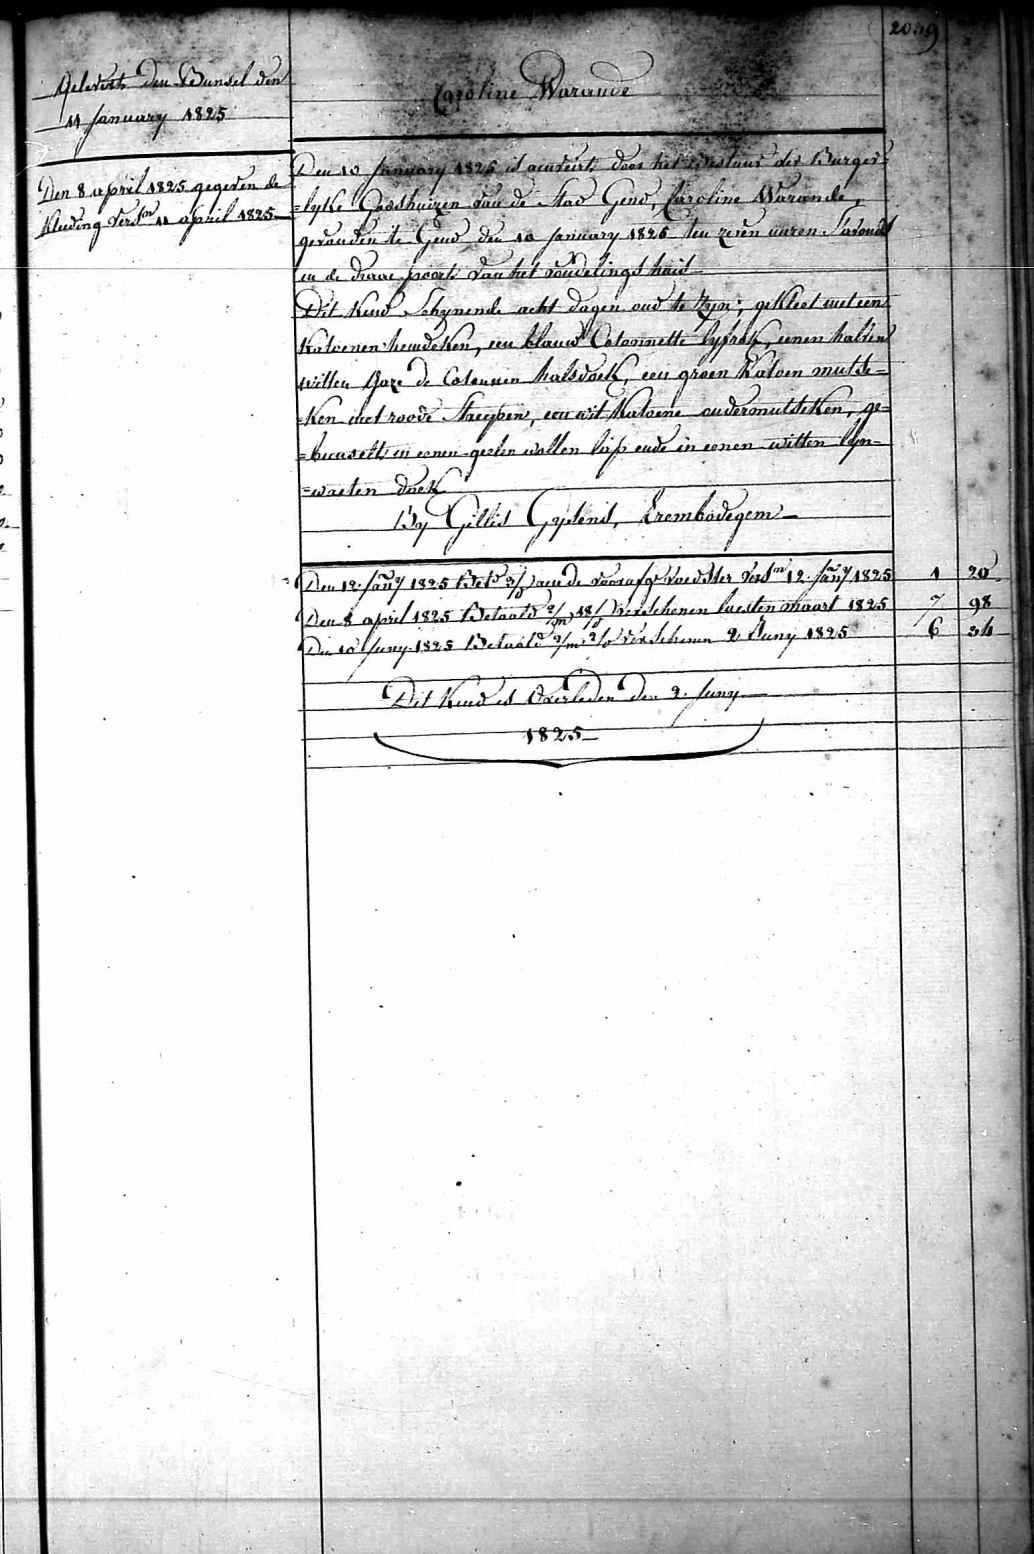 2039
Gelevert den Bunsel den
11 January 1825
Caroline Warande
Den 8 april 1825 gegeven de
kleeding vers^m 11 april 1825
Den 10 January 1825 is aenveirt door het bestuur der Burger=
=lyke Godshuizen van de Stad Gend, Caroline Warande,
gevonden te Gend den 10 January 1825 ten zeven uuren s'avonds
in de draee poort van het vondelings huis
Dit kind schynende acht dagen oud te zyn; gekleet met een
katoenen hemdeken, een blauw Cotonnette lyfrok, eenen halven
witten Gaze de Cotonnen halsdoek, een groen katoen mutse=
=ken met roode streepen, een wit katoene ondermutseken, ge=
=bunselt in eenen geelen wollen lap ende in eenen witten lyn=
=waeten doek
By Gillis Gysens, Erembodegem
Den 12 Jan^y 1825 Bet^d 3/ aen de voorafg^e voedster vers^m 12 Jan^y 1825 1 20
Den 8 april 1825 Betaald 2/m 18/ verschenen laesten maart 1825 7 98
Den 10 Juny 1825 Betaald 2/m 2/ verschenen 2 Juny 1825 6 34
Dit kind is overleden den 2 Juny
1825